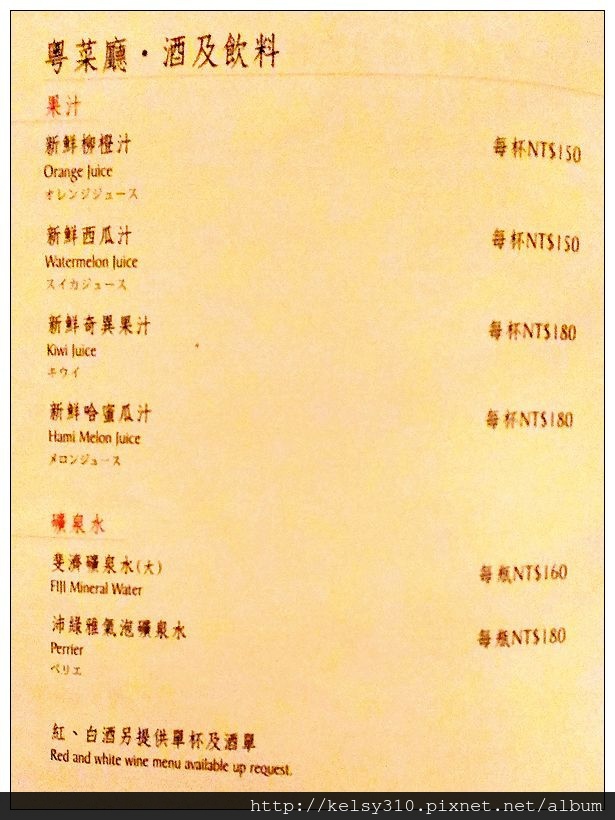 粵菜廳·酒及飲料
果汁
新鮮柳橙汁 每杯NT$150
Orange Juice
オレンジジュース
新鮮西瓜汁 每杯NT$150
Watermelon Juice
スイカジュース
新鮮奇異果汁 每杯NT$180
Kiwi Juice
キウイ
新鮮哈蜜瓜汁 每杯NT$180
Hami Melon Juice
メロンジュース
礦泉水
斐濟礦泉水(大) 每瓶NT$160
FIJI Mineral Water
沛綠雅氣泡礦泉水 每瓶NT$180
Perrier
ペリエ
紅、白酒另提供單杯及酒單
Red and white wine menu available up request.
http://kelsy310.pixnet.net/album